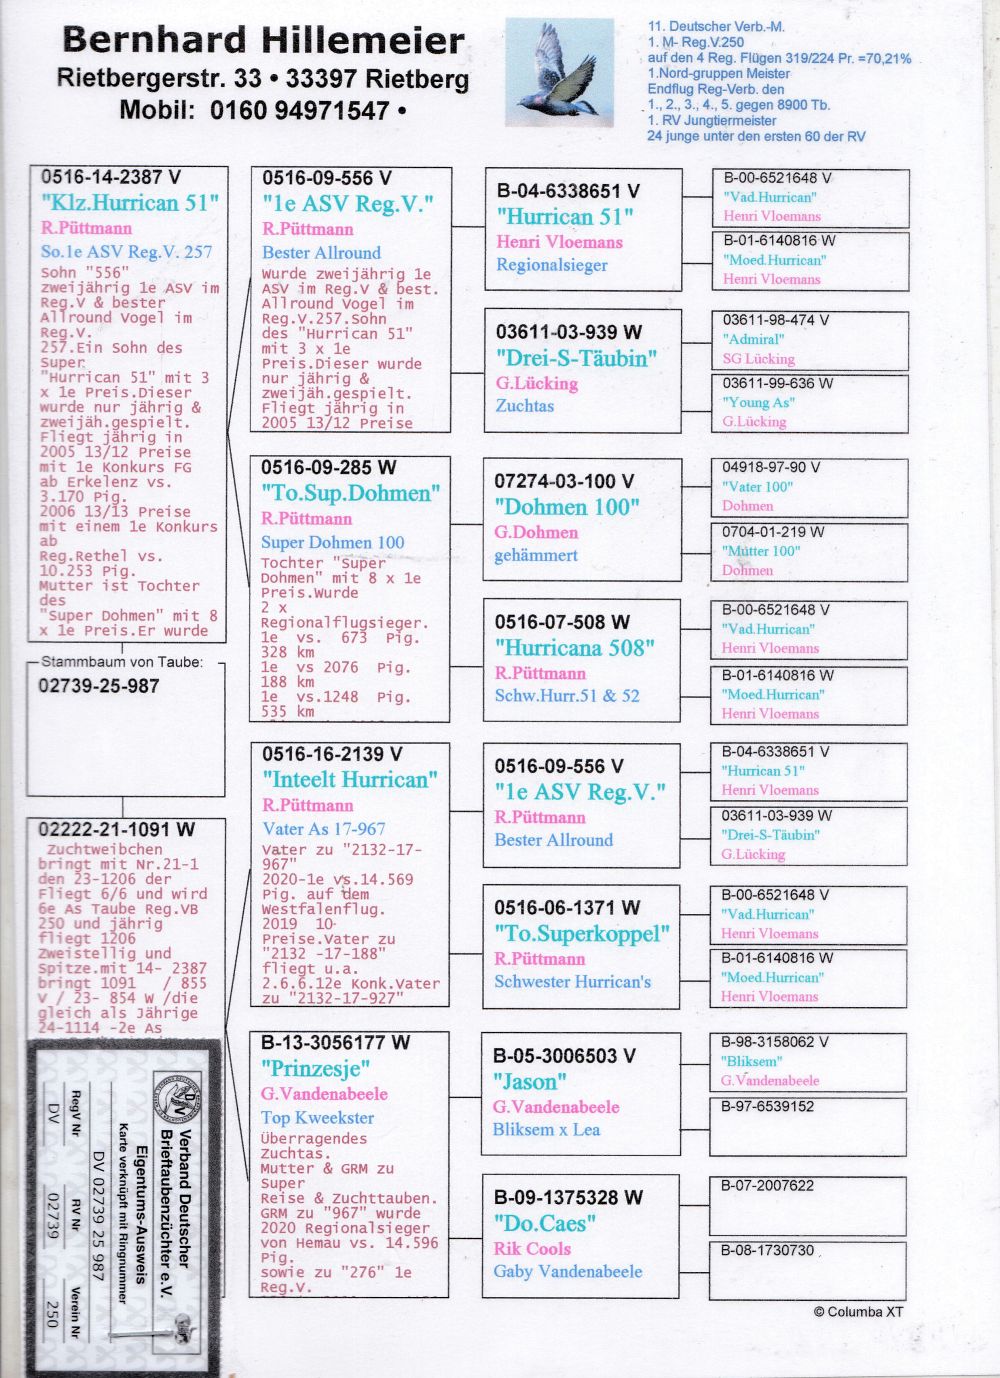 Bernhard Hillemeier
Rietbergerstr. 33 • 33397 Rietberg
Mobil: 0160 94971547 •
11. Deutscher Verb.-M.
1. M- Reg.V.250
auf den 4 Reg. Flügen 319/224 Pr. =70,21%
1.Nord-gruppen Meister
Endflug Reg-Verb. den
1., 2., 3., 4., 5. gegen 8900 Tb.
1. RV Jungtiermeister
24 junge unter den ersten 60 der RV
0516-14-2387 V
"Klz.Hurrican 51"
R.Püttmann
So.1e ASV Reg.V. 257
Sohn "556"
zweijährig 1e ASV im
Reg.V & bester
Allround Vogel im
Reg.V.
257.Ein Sohn des
Super
"Hurrican 51" mit 3
x 1e Preis.Dieser
wurde nur jährig &
zweijäh.gespielt.
Fliegt jährig in
2005 13/12 Preise
mit 1e Konkurs FG
ab Erkelenz vs.
3.170 Pig.
2006 13/13 Preise
mit einem 1e Konkurs
ab
Reg.Rethel vs.
10.253 Pig.
Mutter ist Tochter
des
"Super Dohmen" mit 8
x 1e Preis.Er wurde
Stammbaum von Taube:
02739-25-987
02222-21-1091 W
Zuchtweibchen
bringt mit Nr.21-1
den 23-1206 der
Fliegt 6/6 und wird
6e As Taube Reg.VB
250 und jährig
fliegt 1206
Zweistellig und
Spitze.mit 14- 2387
bringt 1091 / 855
V / 23- 854 W /die
gleich als Jährige
24-1114 -2e As
0516-09-556 V
"1e ASV Reg.V."
R.Püttmann
Bester Allround
Wurde zweijährig 1e
ASV im Reg.V & best.
Allround Vogel im
Reg.V.257.Sohn
des "Hurrican 51"
mit 3 x 1e
Preis.Dieser wurde
nur jährig &
zweijäh.gespielt.
Fliegt jährig in
2005 13/12 Preise
0516-09-285 W
"To.Sup.Dohmen"
R.Püttmann
Super Dohmen 100
Tochter "Super
Dohmen" mit 8 x 1e
Preis.Wurde
2 x
Regionalflugsieger.
1e vs. 673 Pig.
328 km
1e vs 2076 Pig.
188 km
1e vs.1248 Pig.
535 km
0516-16-2139 V
"Inteelt Hurrican"
R.Püttmann
Vater As 17-967
Vater zu "2132-17-
967"
2020-1e vs.14.569
Pig. auf dem
Westfalenflug.
2019 10-
Preise.Vater zu
"2132 -17-188"
fliegt u.a.
2.6.6.12e Konk.Vater
zu "2132-17-927"
B-13-3056177 W
"Prinzesje"
G.Vandenabeele
Top Kweekster
Überragendes
Zuchtas.
Mutter & GRM zu
Super
Reise & Zuchttauben.
GRM zu "967" wurde
2020 Regionalsieger
von Hemau vs. 14.596
Pig.
sowie zu "276" 1e
Reg.V.
B-04-6338651 V
"Hurrican 51"
Henri Vloemans
Regionalsieger
03611-03-939 W
"Drei-S-Täubin"
G.Lücking
Zuchtas
07274-03-100 V
"Dohmen 100"
G.Dohmen
gehämmert
0516-07-508 W
"Hurricana 508"
R.Püttmann
Schw.Hurr.51 & 52
0516-09-556 V
"1e ASV Reg.V."
R.Püttmann
Bester Allround
0516-06-1371 W
"To.Superkoppel"
R.Püttmann
Schwester Hurrican's
B-05-3006503 V
"Jason"
G.Vandenabeele
Bliksem x Lea
B-09-1375328 W
"Do.Caes"
Rik Cools
Gaby Vandenabeele
B-00-6521648 V
"Vad.Hurrican"
Henri Vloemans
B-01-6140816 W
"Moed.Hurrican"
Henri Vloemans
03611-98-474 V
"Admiral"
SG Lücking
03611-99-636 W
"Young As"
G.Lücking
04918-97-90 V
"Vater 100"
Dohmen
0704-01-219 W
"Mutter 100"
Dohmen
B-00-6521648 V
"Vad.Hurrican"
Henri Vloemans
B-01-6140816 W
"Moed.Hurrican"
Henri Vloemans
B-04-6338651 V
"Hurrican 51"
Henri Vloemans
03611-03-939 W
"Drei-S-Täubin"
G.Lücking
B-00-6521648 V
"Vad.Hurrican"
Henri Vloemans
B-01-6140816 W
"Moed.Hurrican"
Henri Vloemans
B-98-3158062 V
"Bliksem"
G.Vandenabeele
B-97-6539152
B-07-2007622
B-08-1730730
© Columba XT
Verband Deutscher
Brieftaubenzüchter e.V.
Eigentums-Ausweis
Karte verknüpft mit Ringnummer
DV 02739 25 987
RegV Nr RV Nr Verein Nr
DV 02739 250